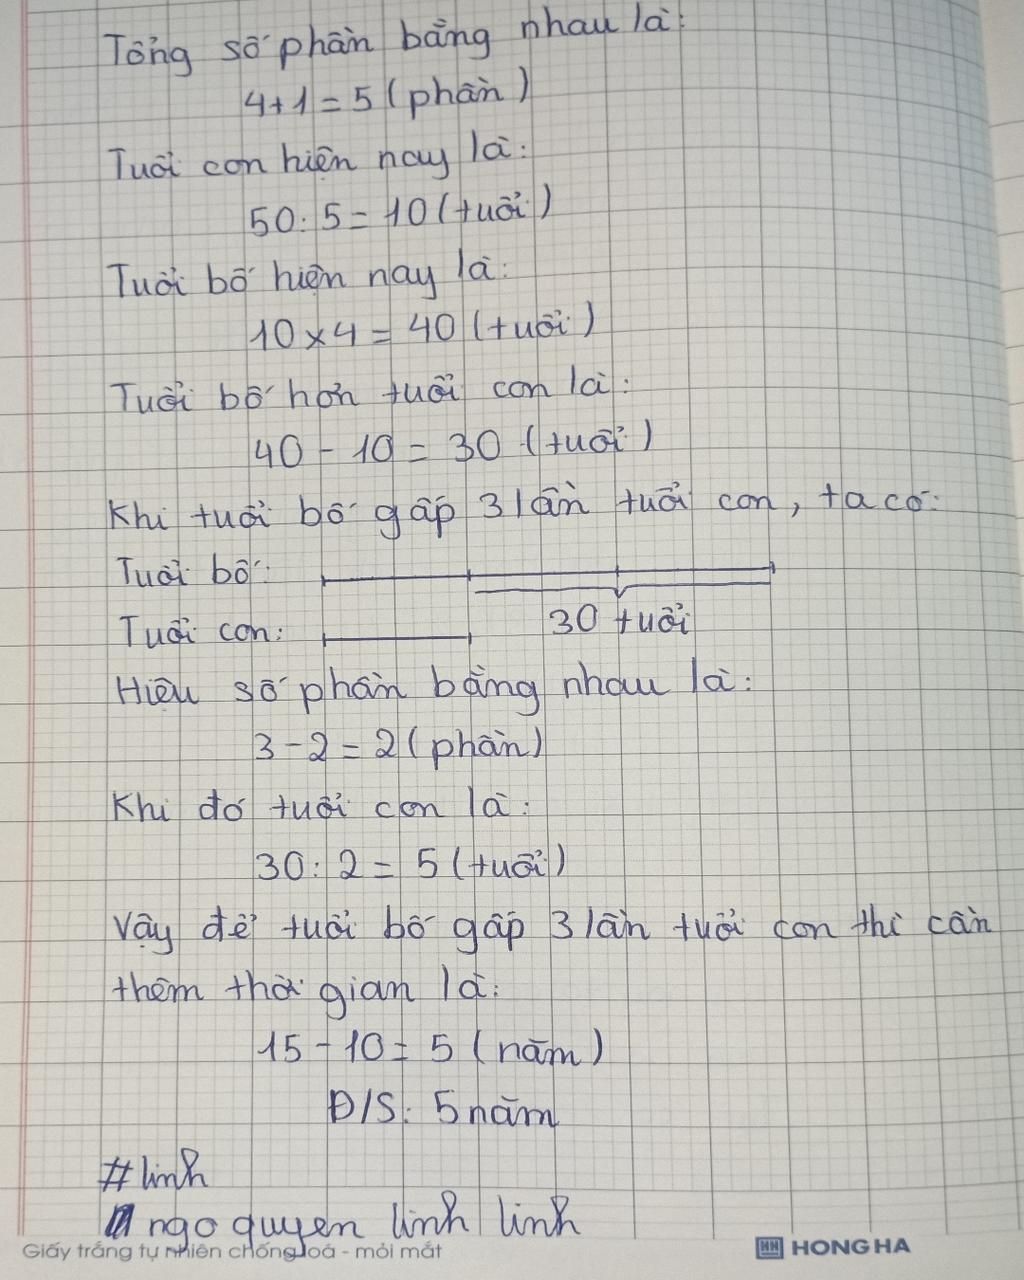 Tổng số phần bằng nhau là:
4+1=5 (phần)
Tuổi con hiện nay là:
50:5=10 (tuổi)
Tuổi bố hiện nay là:
10×4=40 (tuổi)
Tuổi bố hơn tuổi con là:
40-10=30 (tuổi)
Khi tuổi bố gấp 3 lần tuổi con, ta có:
Tuổi bố:
30 tuổi
Tuổi con:
Hiệu số phần bằng nhau là:
3-2=2 (phần)
Khi đó tuổi con là:
30:2=5 (tuổi)
Vậy để tuổi bố gấp 3 lần tuổi con thì cần
thêm thời gian là:
15-10=5 (năm)
Đ/S: 5 năm
#linh
ngo quyen linh linh
Giấy trắng tự nhiên chống loá - mỏi mắt
HH HONG HA